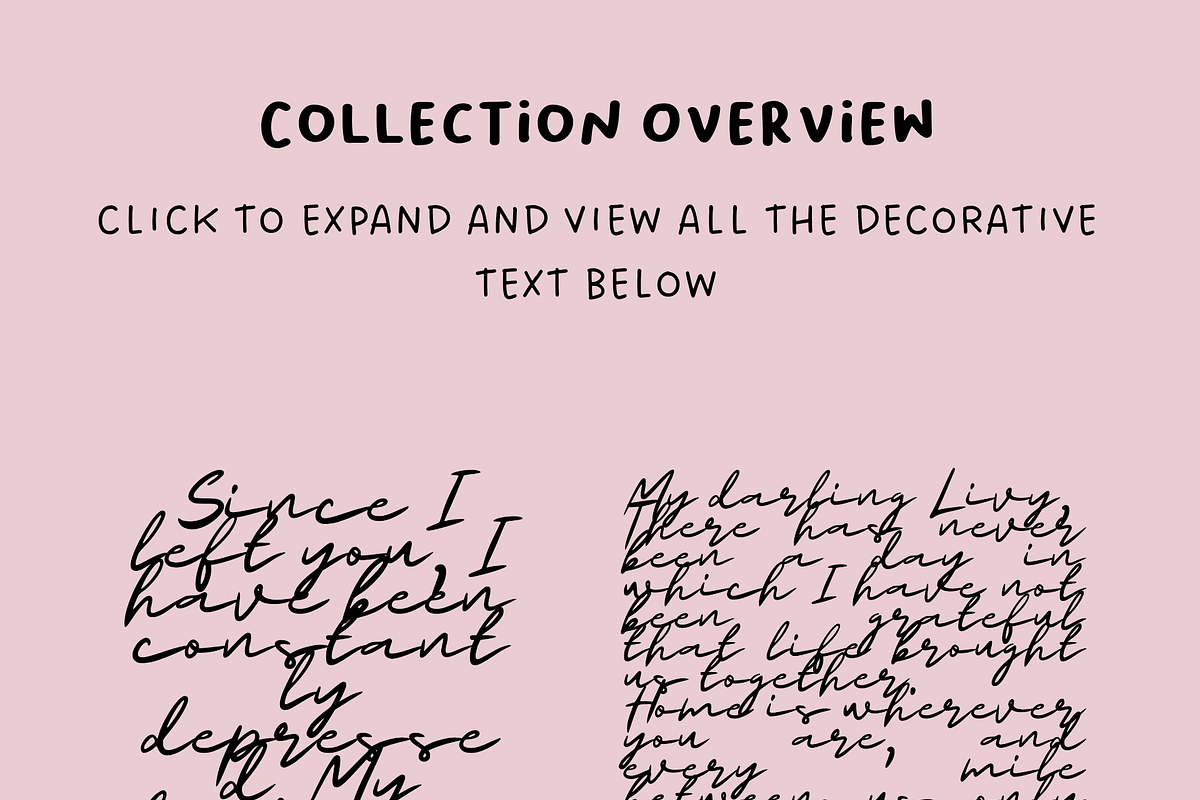 COLLECTION OVERVIEW
CLICK TO EXPAND AND VIEW ALL THE DECORATIVE
TEXT BELOW
Since I
left you, I
have been
constant
ly
depresse
d. My
My darling Livy,
There has never
been a day in
which I have not
been grateful
that life brought
us together.
Home is wherever
you are, and
every mile
between us only